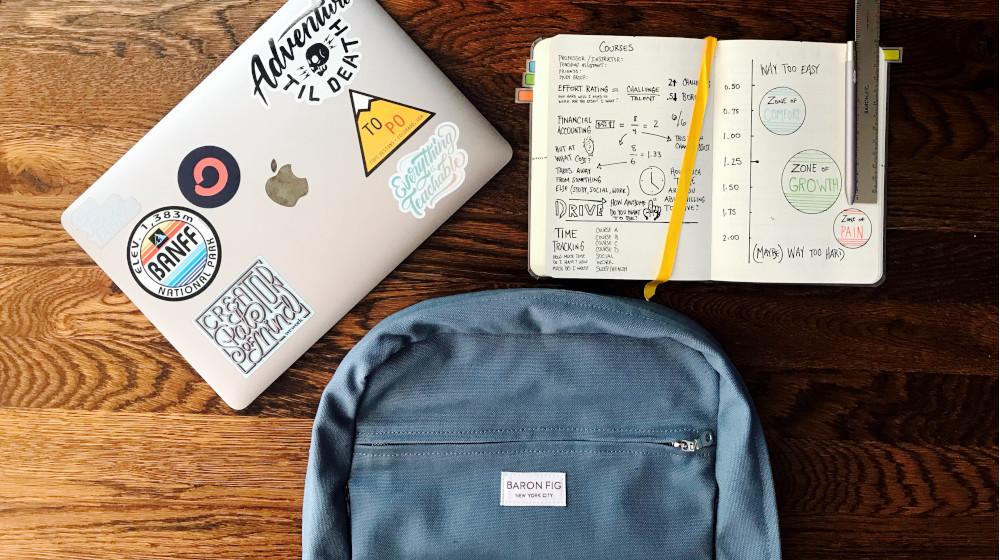 Adventure
'TIL DEATH
TO PO
Everything
Teachable
ELEV. 1,383m
BANFF
NATIONAL PARK
CREATOR
State
of Mind
COURSES
PROFESSOR / INSTRUCTOR:
TEACHING ASSISTANT:
FRIENDS:
STUDY GROUP:
EFFORT RATING = CHALLENGE
TALENT
HOW HARD WILL I NEED TO
WORK FOR THE GRADE I WANT?
FINANCIAL
ACCOUNTING
= 8/4 = 2
BUT AT
WHAT COST?
8/6 = 1.33
TAKES AWAY
FROM SOMETHING
ELSE (STUDY, SOCIAL, WORK)
DRIVE
HOW AWESOME
DO YOU WANT
TO BE?
TIME
TRACKING
HOW MUCH TIME
DO I HAVE? HOW
MUCH DO I WANT?
COURSE A
COURSE B
COURSE C
COURSE D
SOCIAL
WORK
SLEEP/HEALTH
WAY TOO EASY
0.50
0.75
1.00
1.25
1.50
1.75
2.00
ZONE OF
COMFORT
ZONE OF
GROWTH
ZONE OF
PAIN
(MAYBE) WAY TOO HARD
BARON FIG
NEW YORK CITY